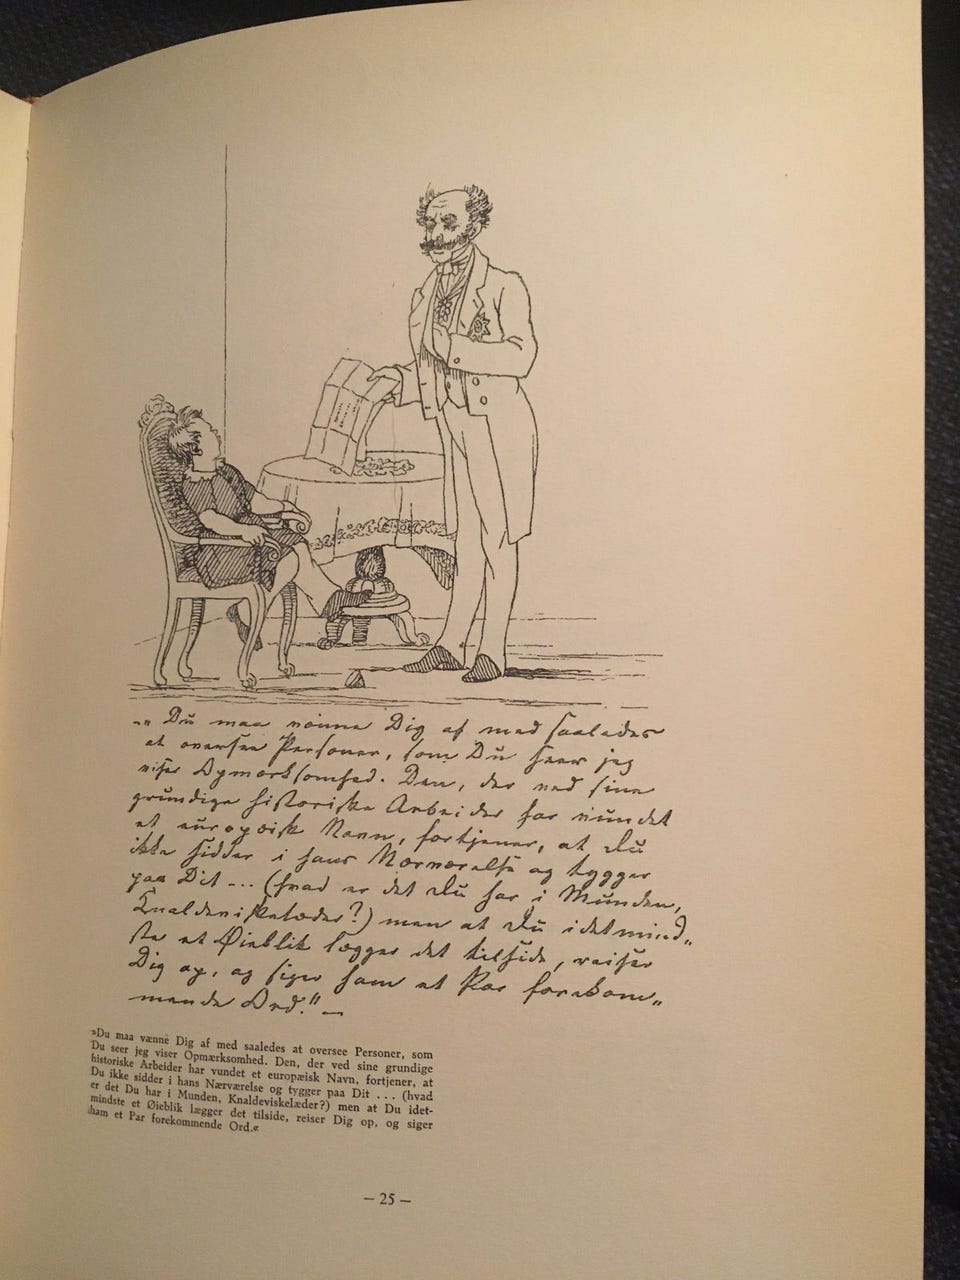 -„ Du maa vænne Dig af med saaledes
at oversee Personer, som Du seer jeg
viser Opmærksomhed. Den, der ved sine
grundige historiske Arbeider har vundet
et europæisk Navn, fortjener, at Du
ikke sidder i hans Nærværelse og tygger
paa Dit --- (hvad er det Du har i Munden,
Knaldeviskelæder?) men at Du idetmind„
ste et Øieblik lægger det tilside, reiser
Dig op, og siger ham et Par forekom„
mende Ord." —
»Du maa vænne Dig af med saaledes at oversee Personer, som
Du seer jeg viser Opmærksomhed. Den, der ved sine grundige
historiske Arbeider har vundet et europæisk Navn, fortjener, at
Du ikke sidder i hans Nærværelse og tygger paa Dit . . . (hvad
er det Du har i Munden, Knaldeviskelæder?) men at Du idet-
mindste et Øieblik lægger det tilside, reiser Dig op, og siger
ham et Par forekommende Ord.«
– 25 –